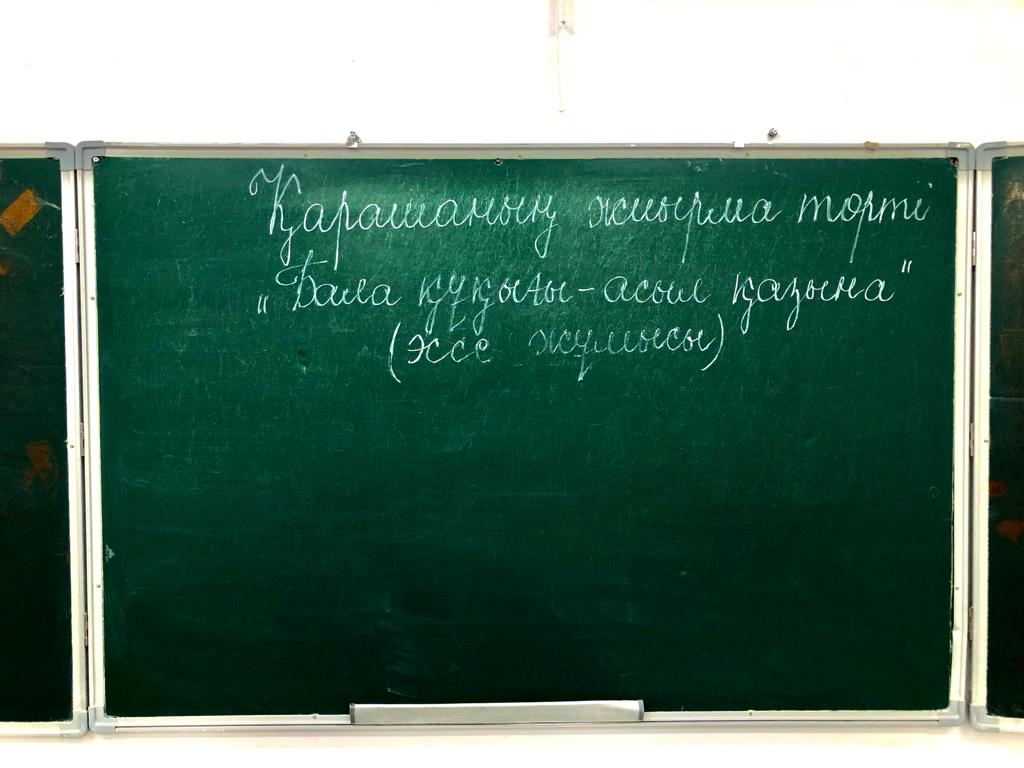 Қарашаның жиырма төрті
„Бала құқығы - асыл қазына"
(эссе жұмысы)